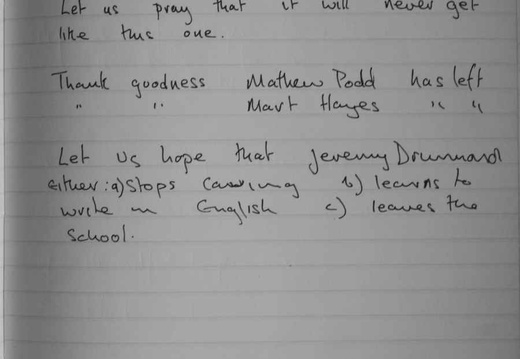 Let us pray that it will never get
like this one.
Thank goodness Mathew Podd has left
" " Mart Hayes " "
Let us hope that Jeremy Drummard
either: a) Stops b) learns to
write in English c) leaves the
School.